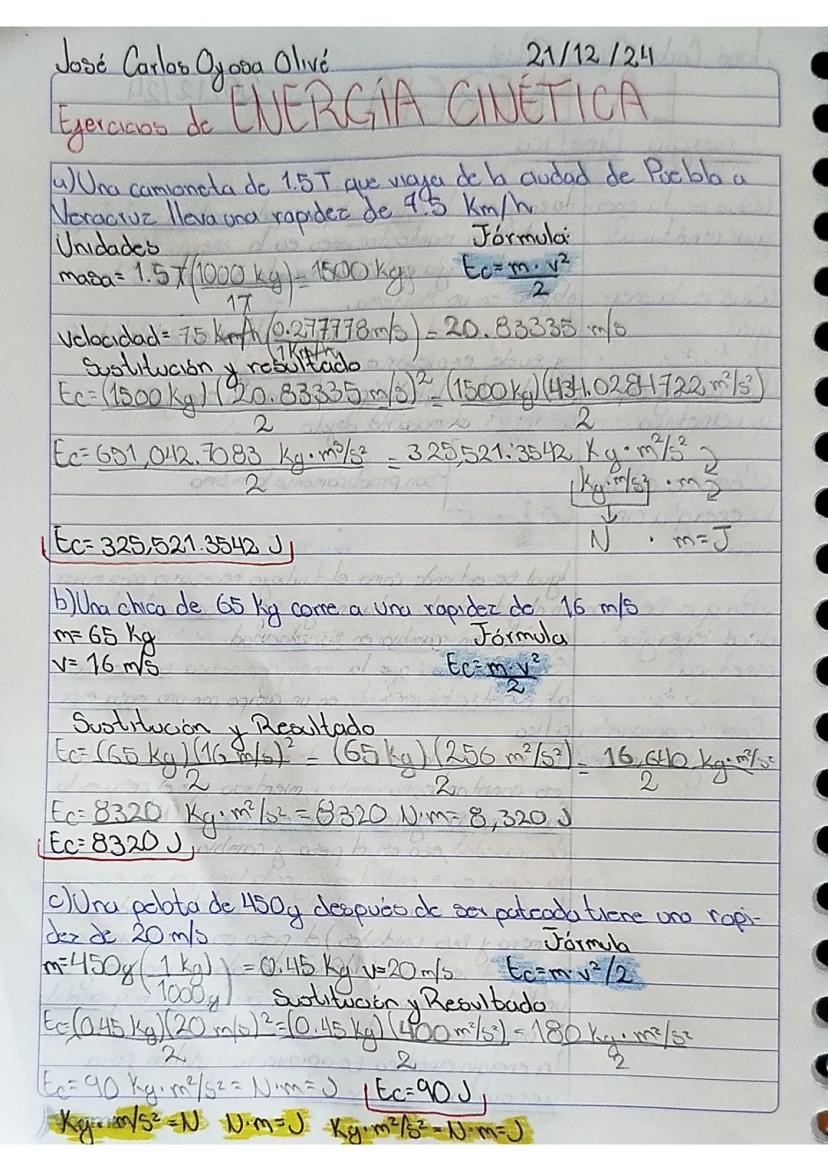 José Carlos Oyosa Olivé 21/12/24
Ejercicios de ENERGÍA CINÉTICA
a) Una camioneta de 1.5T que viaja de la ciudad de Puebla a
Veracruz lleva una rapidez de 75 Km/h
Unidades Fórmula:
masa = 1.5T (1000 kg / 1T) = 1500 kg Ec = m · v² / 2
velocidad = 75 Km/h (0.277778 m/s / 1 Km/h) = 20.83335 m/s
Sustitución y resultado
Ec = (1500 kg) (20.83335 m/s)² / 2 = (1500 kg) (434.0284722 m²/s²) / 2
Ec = 651,042.7083 Kg · m²/s² / 2 = 325,521.3542 Kg · m²/s²
Kg · m/s² · m
Ec = 325,521.3542 J N · m = J
b) Una chica de 65 Kg corre a una rapidez de 16 m/s
m = 65 Kg Fórmula
v = 16 m/s Ec = m · v² / 2
Sustitución y Resultado
Ec = (65 kg) (16 m/s)² / 2 = (65 kg) (256 m²/s²) / 2 = 16,640 kg · m²/s² / 2
Ec = 8320 Kg · m²/s² = 8320 N · m = 8,320 J
Ec = 8320 J
c) Una pelota de 450g después de ser pateada tiene una rapi-
dez de 20 m/s Fórmula
m = 450g (1 kg / 1000g) = 0.45 Kg v = 20 m/s Ec = m · v² / 2
Sustitución y Resultado
Ec = (0.45 Kg) (20 m/s)² / 2 = (0.45 kg) (400 m²/s²) / 2 = 180 Kg · m²/s² / 2
Ec = 90 Kg · m²/s² = N · m = J Ec = 90 J
Kg · m/s² = N N · m = J Kg · m²/s² = N · m = J